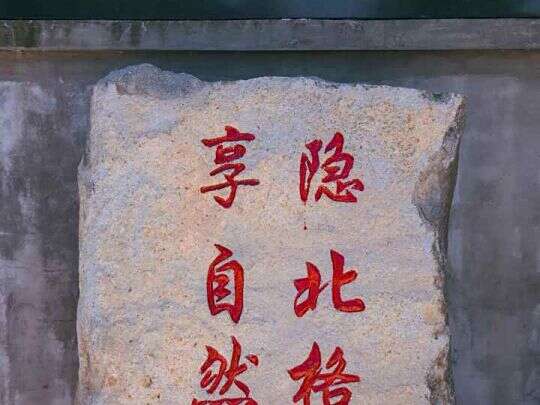 隐北格
享自然